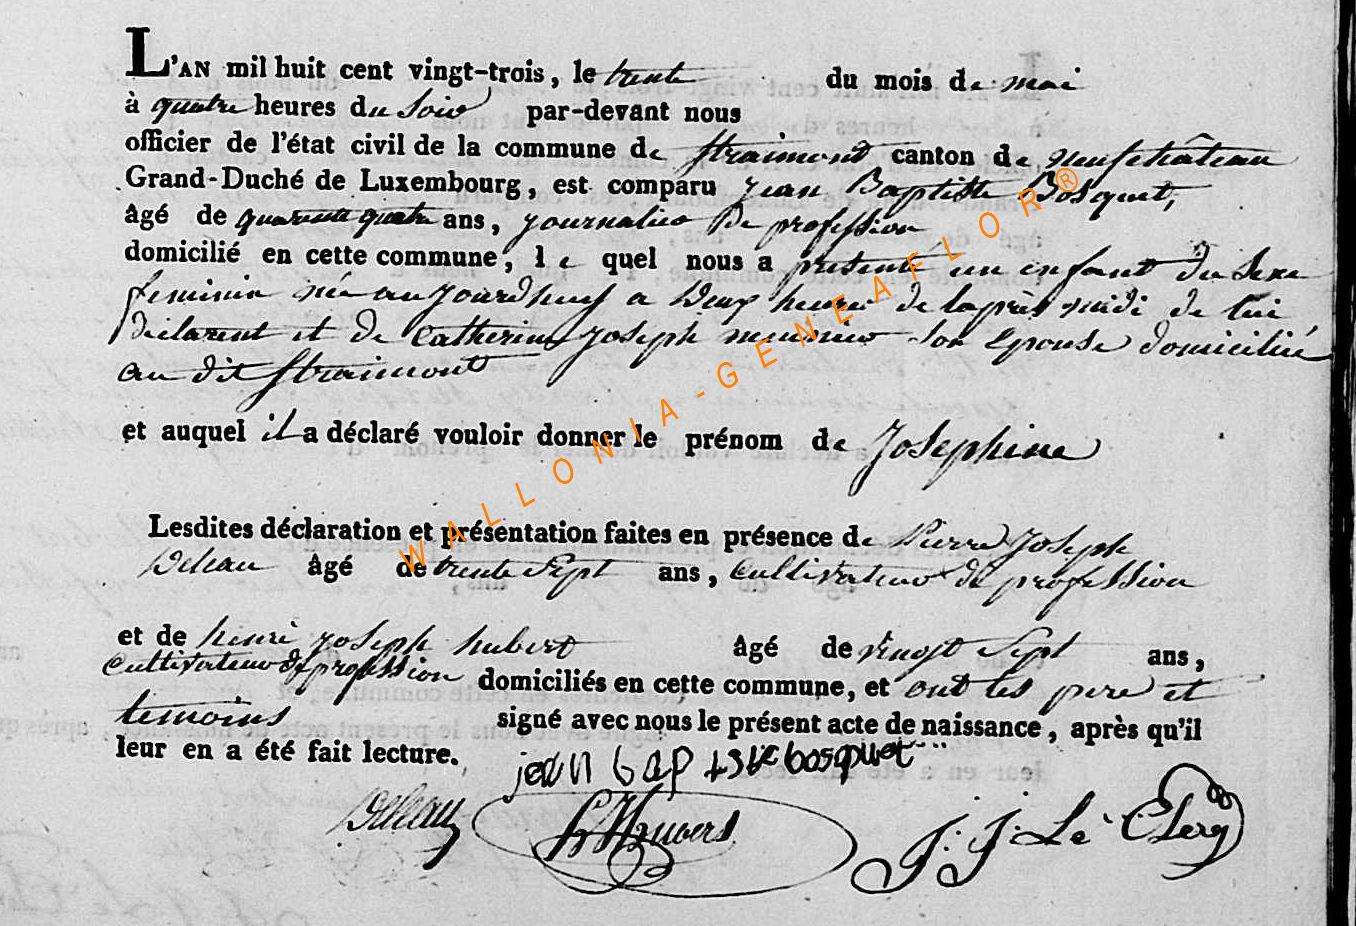 L'AN mil huit cent vingt-trois, le trente du mois de mai
à quatre heures du soir par-devant nous
officier de l'état civil de la commune de Straimont canton de neufchâteau
Grand-Duché de Luxembourg, est comparu jean Baptiste Bosquet,
âgé de quarente quatre ans, journalier de profession
domicilié en cette commune, le quel nous a présenté un enfant du sexe
feminin née aujourdhuy a deux heures de laprès midi de lui
déclarent et de Catherine joseph meunier son Epouse domiciliée
au dit Straimont
et auquel il a déclaré vouloir donner le prénom de Josephine
Lesdites déclaration et présentation faites en présence de Pierre Joseph
Deleau âgé de trente Sept ans, Cultivateur de profession
et de henri joseph hubert âgé de vingt Sept ans,
Cultivateur de profession domiciliés en cette commune, et ont les pere et
temoins signé avec nous le présent acte de naissance, après qu'il
leur en a été fait lecture.
jean baptiste bosquet
Deleau J. J. Le Clerq
WALLONIA-GENEAFLOR®